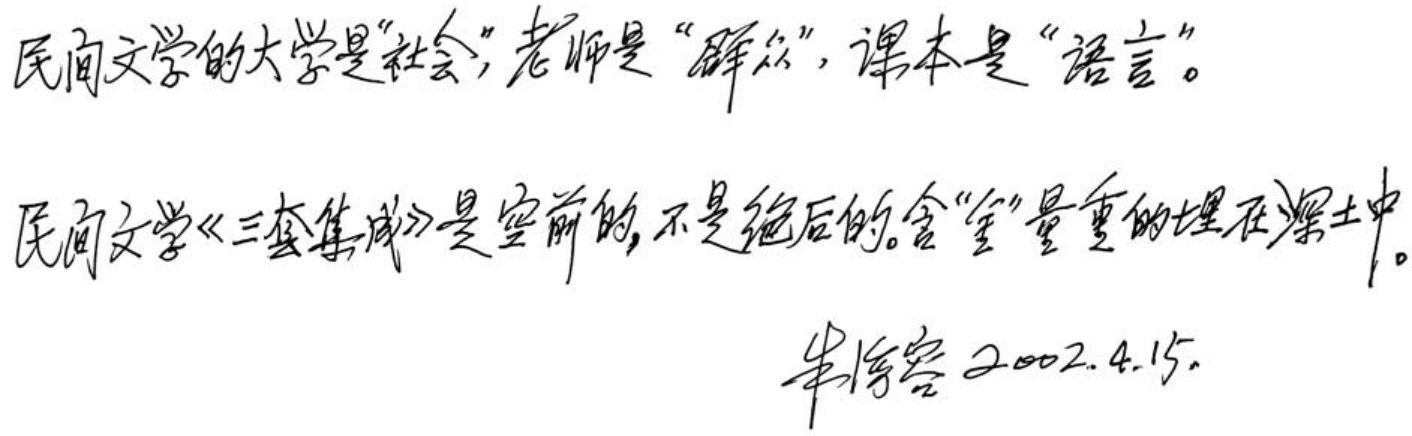 民间文学的大学是“社会”,老师是“群众”,课本是“语言”。
民间文学《三套集成》是空前的,不是绝后的。含“金”量重的埋在深土中。
2002.4.15.